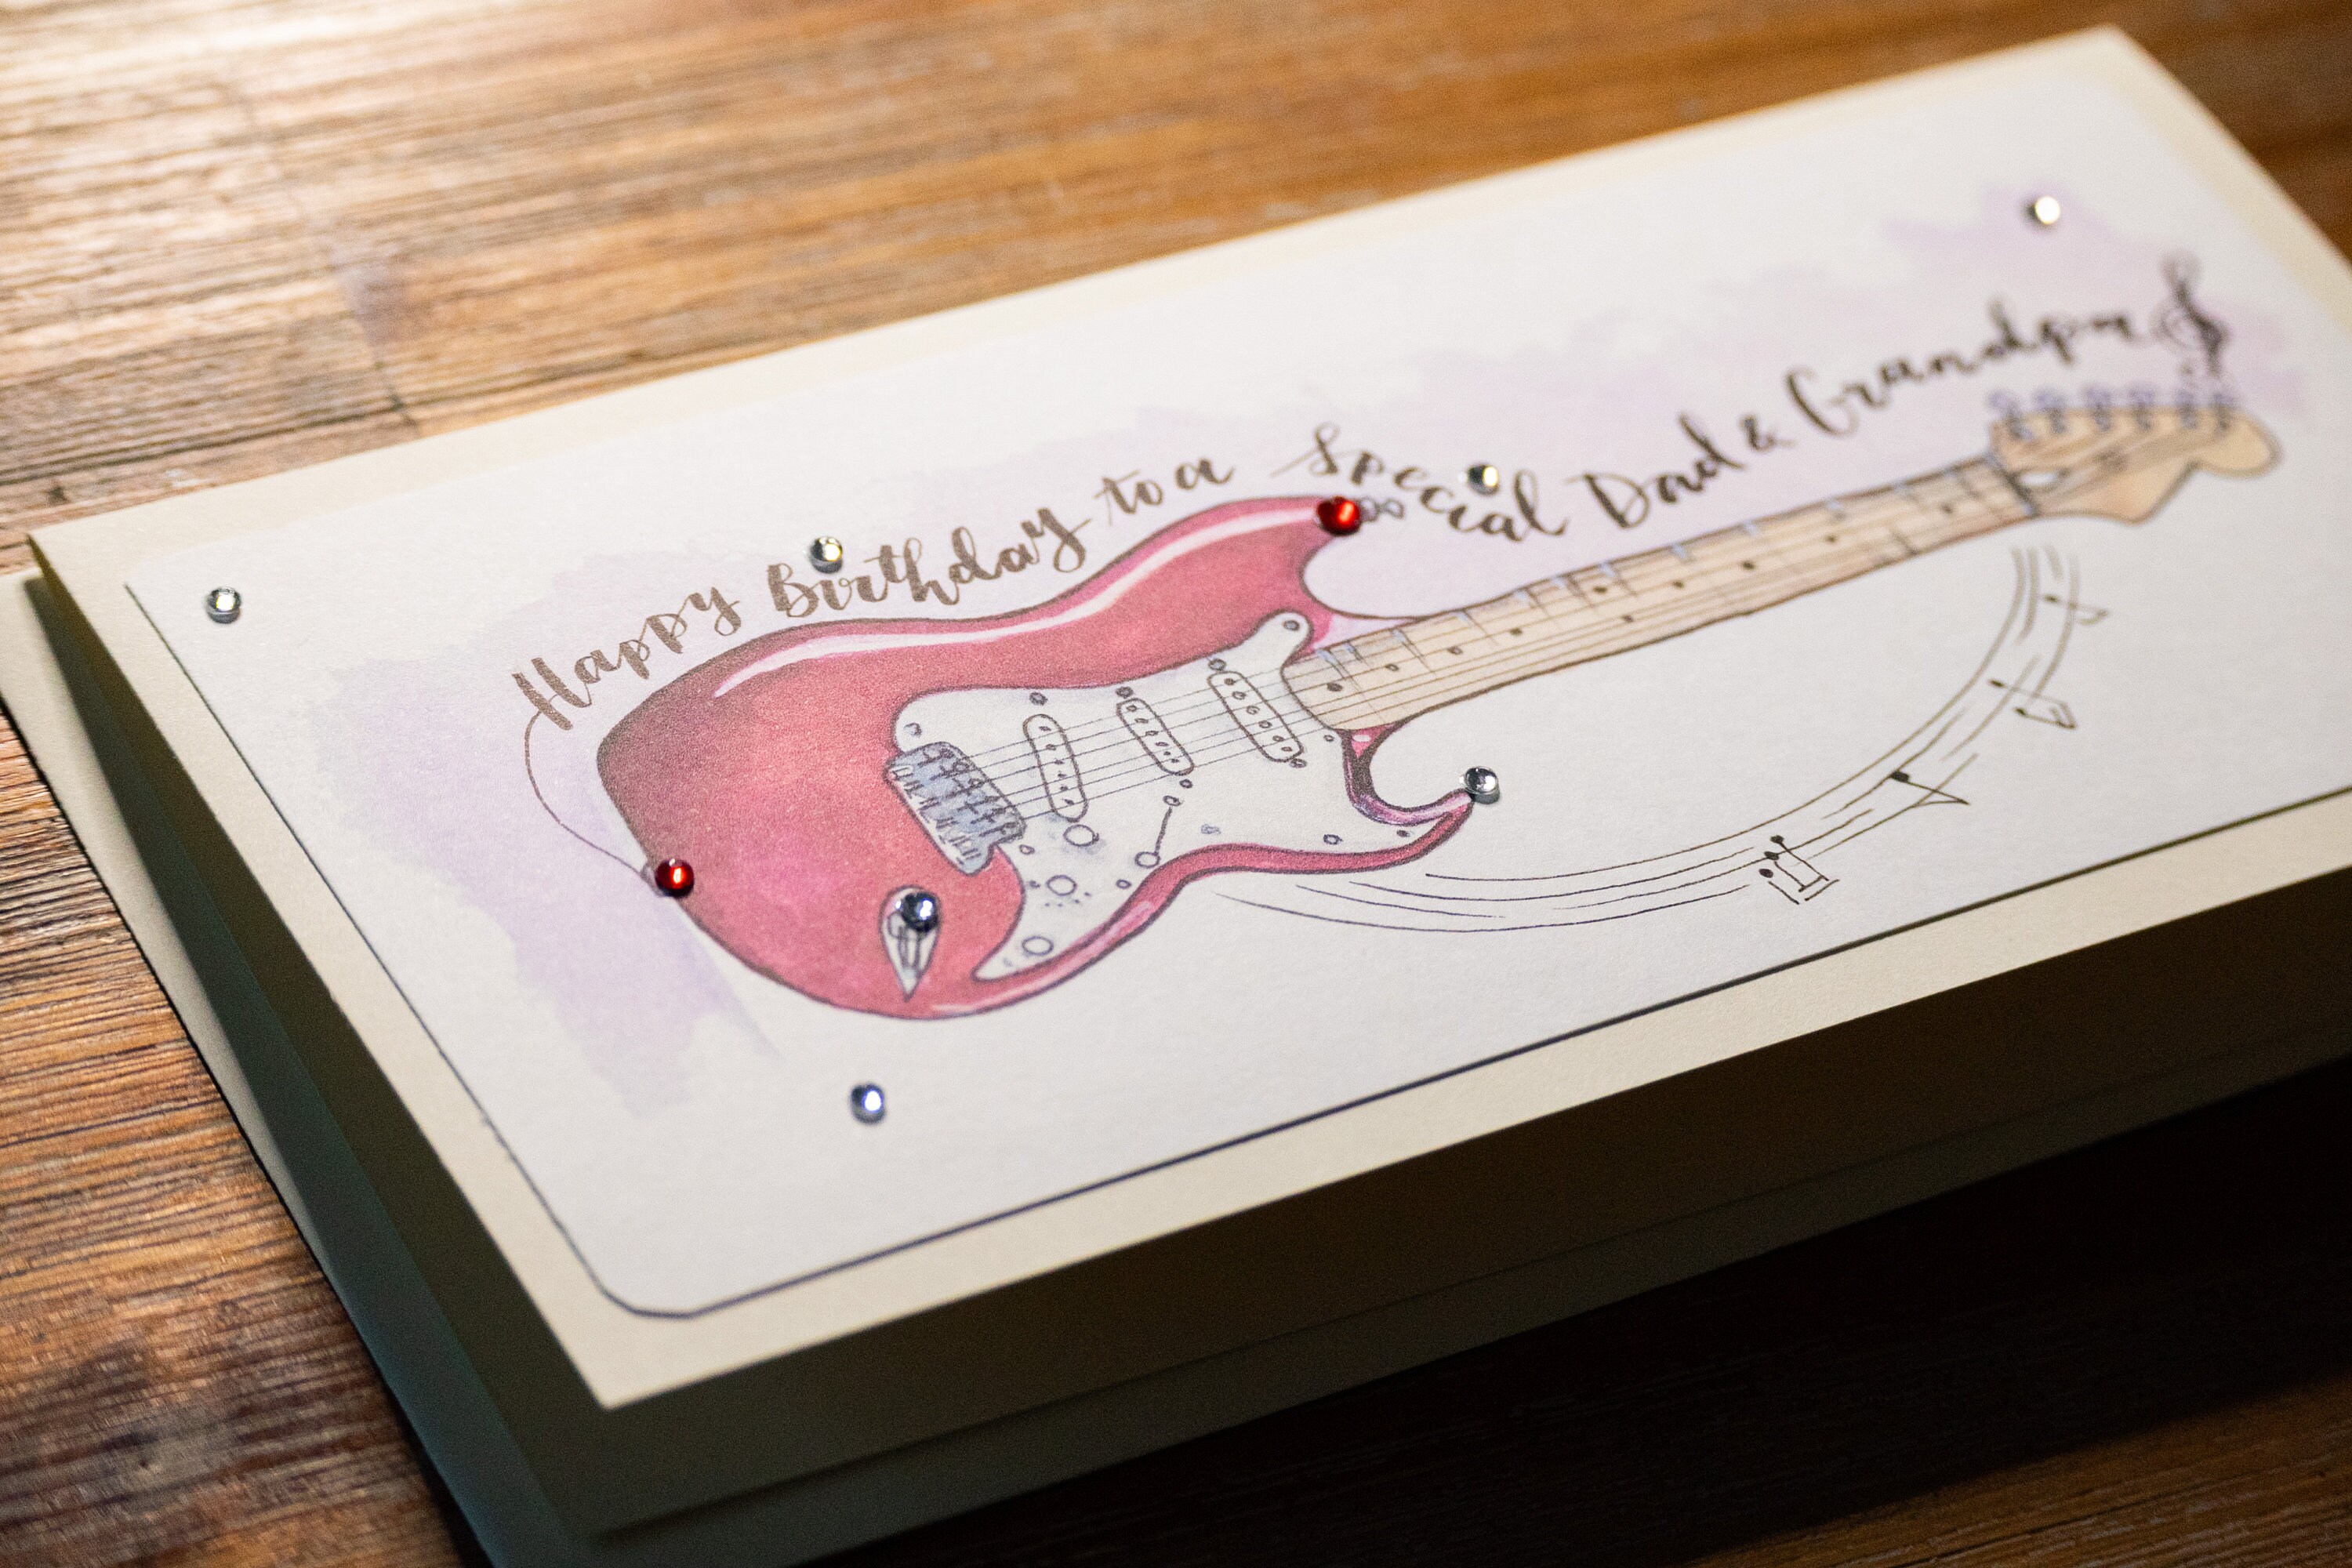 Happy Birthday to a Special Dad & Grandpa